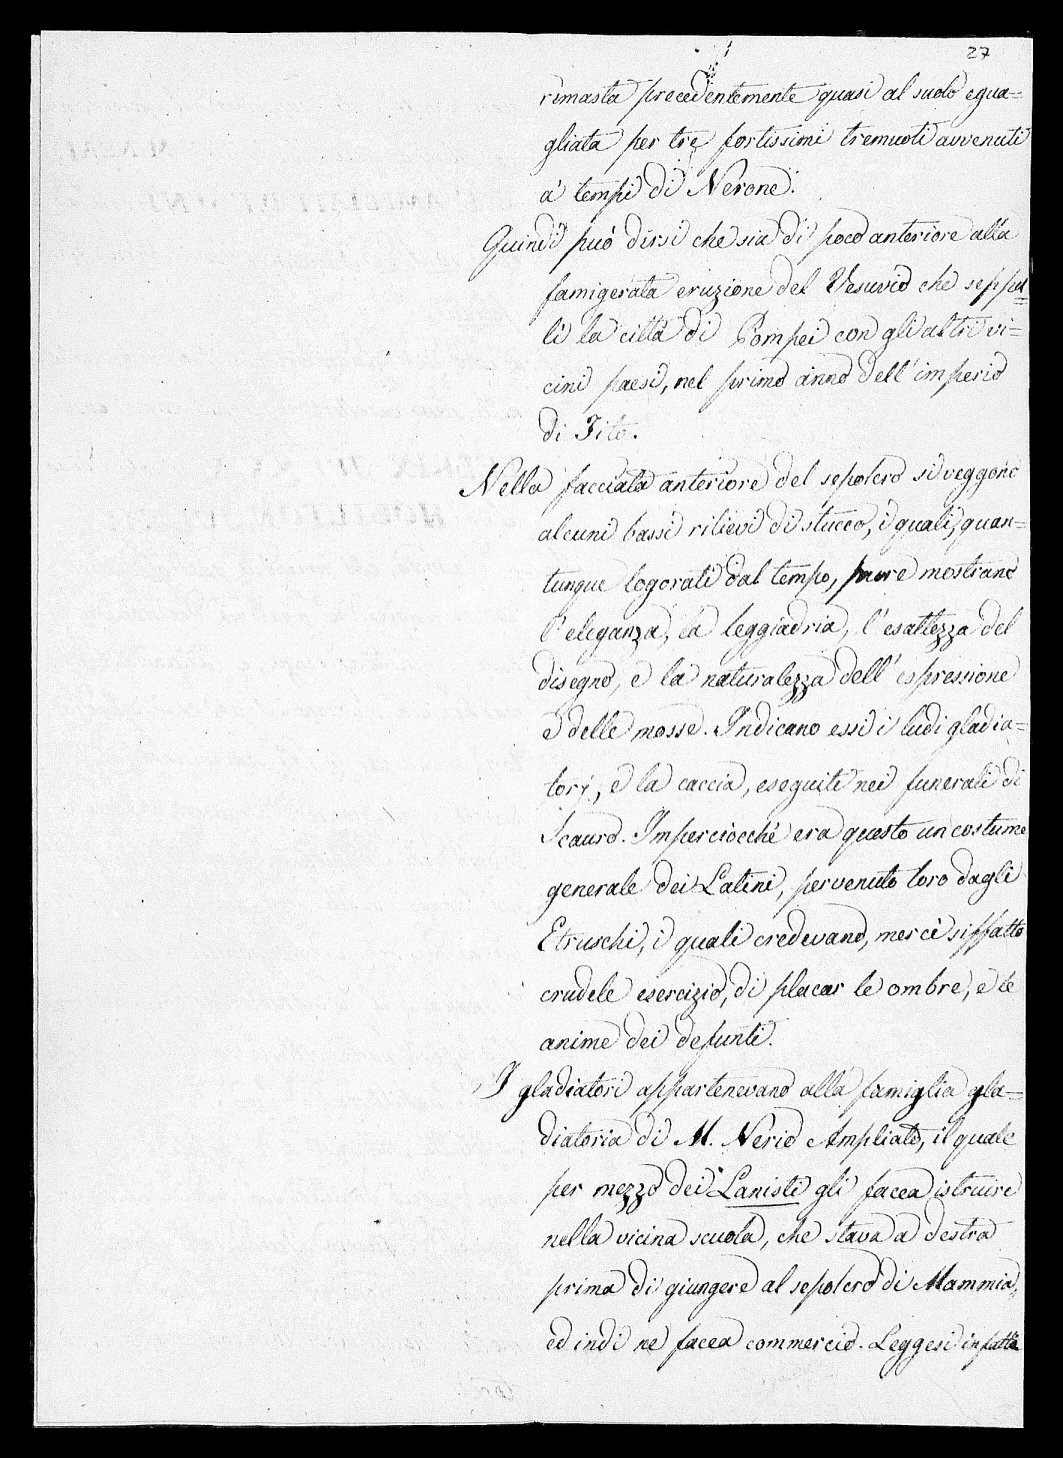 27
rimasta precedentemente quasi al suolo egua=
gliata per tre fortissimi tremuoti avvenuti
a' tempi di Nerone.
Quindi può dirsi che sia di poco anteriore alla
famigerata eruzione del Vesuvio che seppel=
lì la città di Pompei con gli altri vi=
cini paesi, nel primo anno dell' imperio
di Tito.
Nella facciata anteriore del sepolcro si veggono
alcuni bassi rilievi di stucco, i quali, quan=
tunque logorati dal tempo, pure mostrano
l'eleganza, la leggiadria, l'esattezza del
disegno, e la naturalezza dell' espressione
e delle mosse. Indicano essi i ludi gladia=
torj, e la caccia, eseguiti nei funerali di
Scauro. Imperciocchè era questo un costume
generale dei Latini, pervenuto loro dagli
Etruschi, i quali credevano, mercè siffatto
crudele esercizio, di placar le ombre, e le
anime dei defunti.
I gladiatori appartenevano alla famiglia gla=
diatoria di M. Nerio Ampliato, il quale
per mezzo dei Lanisti gli facea istruire
nella vicina scuola, che stava a destra
prima di giungere al sepolcro di Mammia,
ed indi ne facea commercio. Leggesi infatti